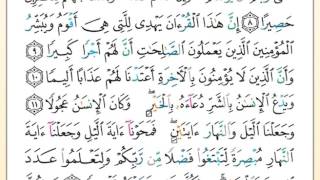 حَصِيرًا ۝٨ إِنَّ هَٰذَا ٱلْقُرْءَانَ يَهْدِى لِلَّتِى هِىَ أَقْوَمُ وَيُبَشِّرُ
ٱلْمُؤْمِنِينَ ٱلَّذِينَ يَعْمَلُونَ ٱلصَّٰلِحَٰتِ أَنَّ لَهُمْ أَجْرًا كَبِيرًا ۝٩
وَأَنَّ ٱلَّذِينَ لَا يُؤْمِنُونَ بِٱلْءَاخِرَةِ أَعْتَدْنَا لَهُمْ عَذَابًا أَلِيمًا ۝١٠
وَيَدْعُ ٱلْإِنسَٰنُ بِٱلشَّرِّ دُعَآءَهُۥ بِٱلْخَيْرِ ۖ وَكَانَ ٱلْإِنسَٰنُ عَجُولًا ۝١١
وَجَعَلْنَا ٱلَّيْلَ وَٱلنَّهَارَ ءَايَتَيْنِ ۖ فَمَحَوْنَآ ءَايَةَ ٱلَّيْلِ وَجَعَلْنَآ ءَايَةَ
ٱلنَّهَارِ مُبْصِرَةً لِّتَبْتَغُوا۟ فَضْلًا مِّن رَّبِّكُمْ وَلِتَعْلَمُوا۟ عَدَدَ